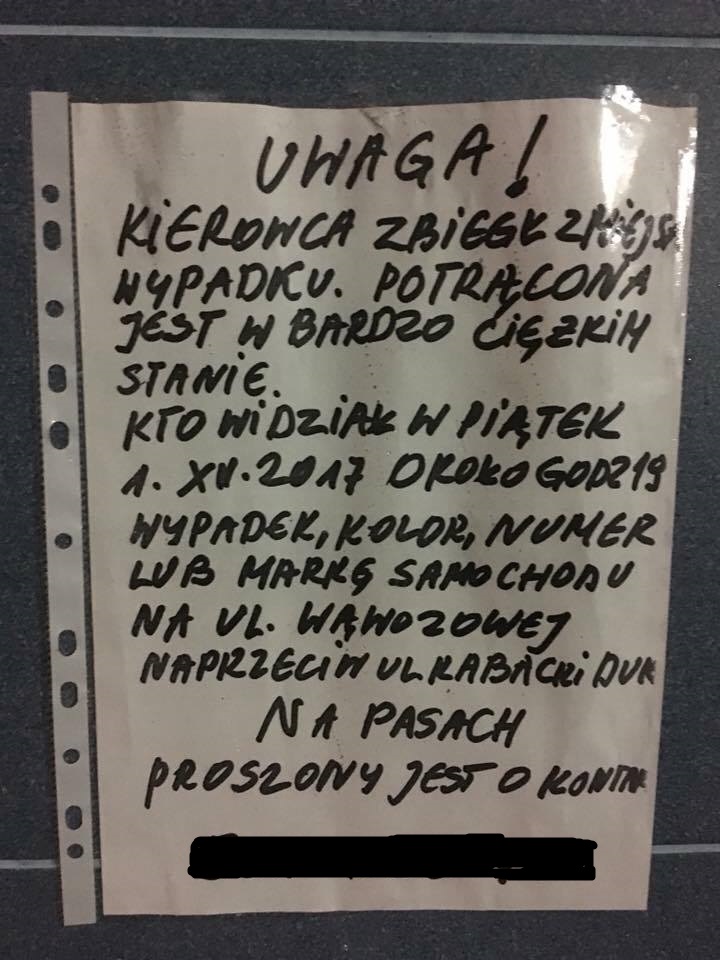 UWAGA!
KIEROWCA ZBIEGŁ Z MIEJSC
WYPADKU. POTRĄCONA
JEST W BARDZO CIĘZKIM
STANIE.
KTO WIDZIAŁ W PIĄTEK
1. XII. 2017 OKOŁO GODZ 19
WYPADEK, KOLOR, NUMER
LUB MARKĘ SAMOCHODU
NA UL. WĄWOZOWEJ
NAPRZECIW UL KABACKI DUK
NA PASACH
PROSZONY JEST O KONTAK